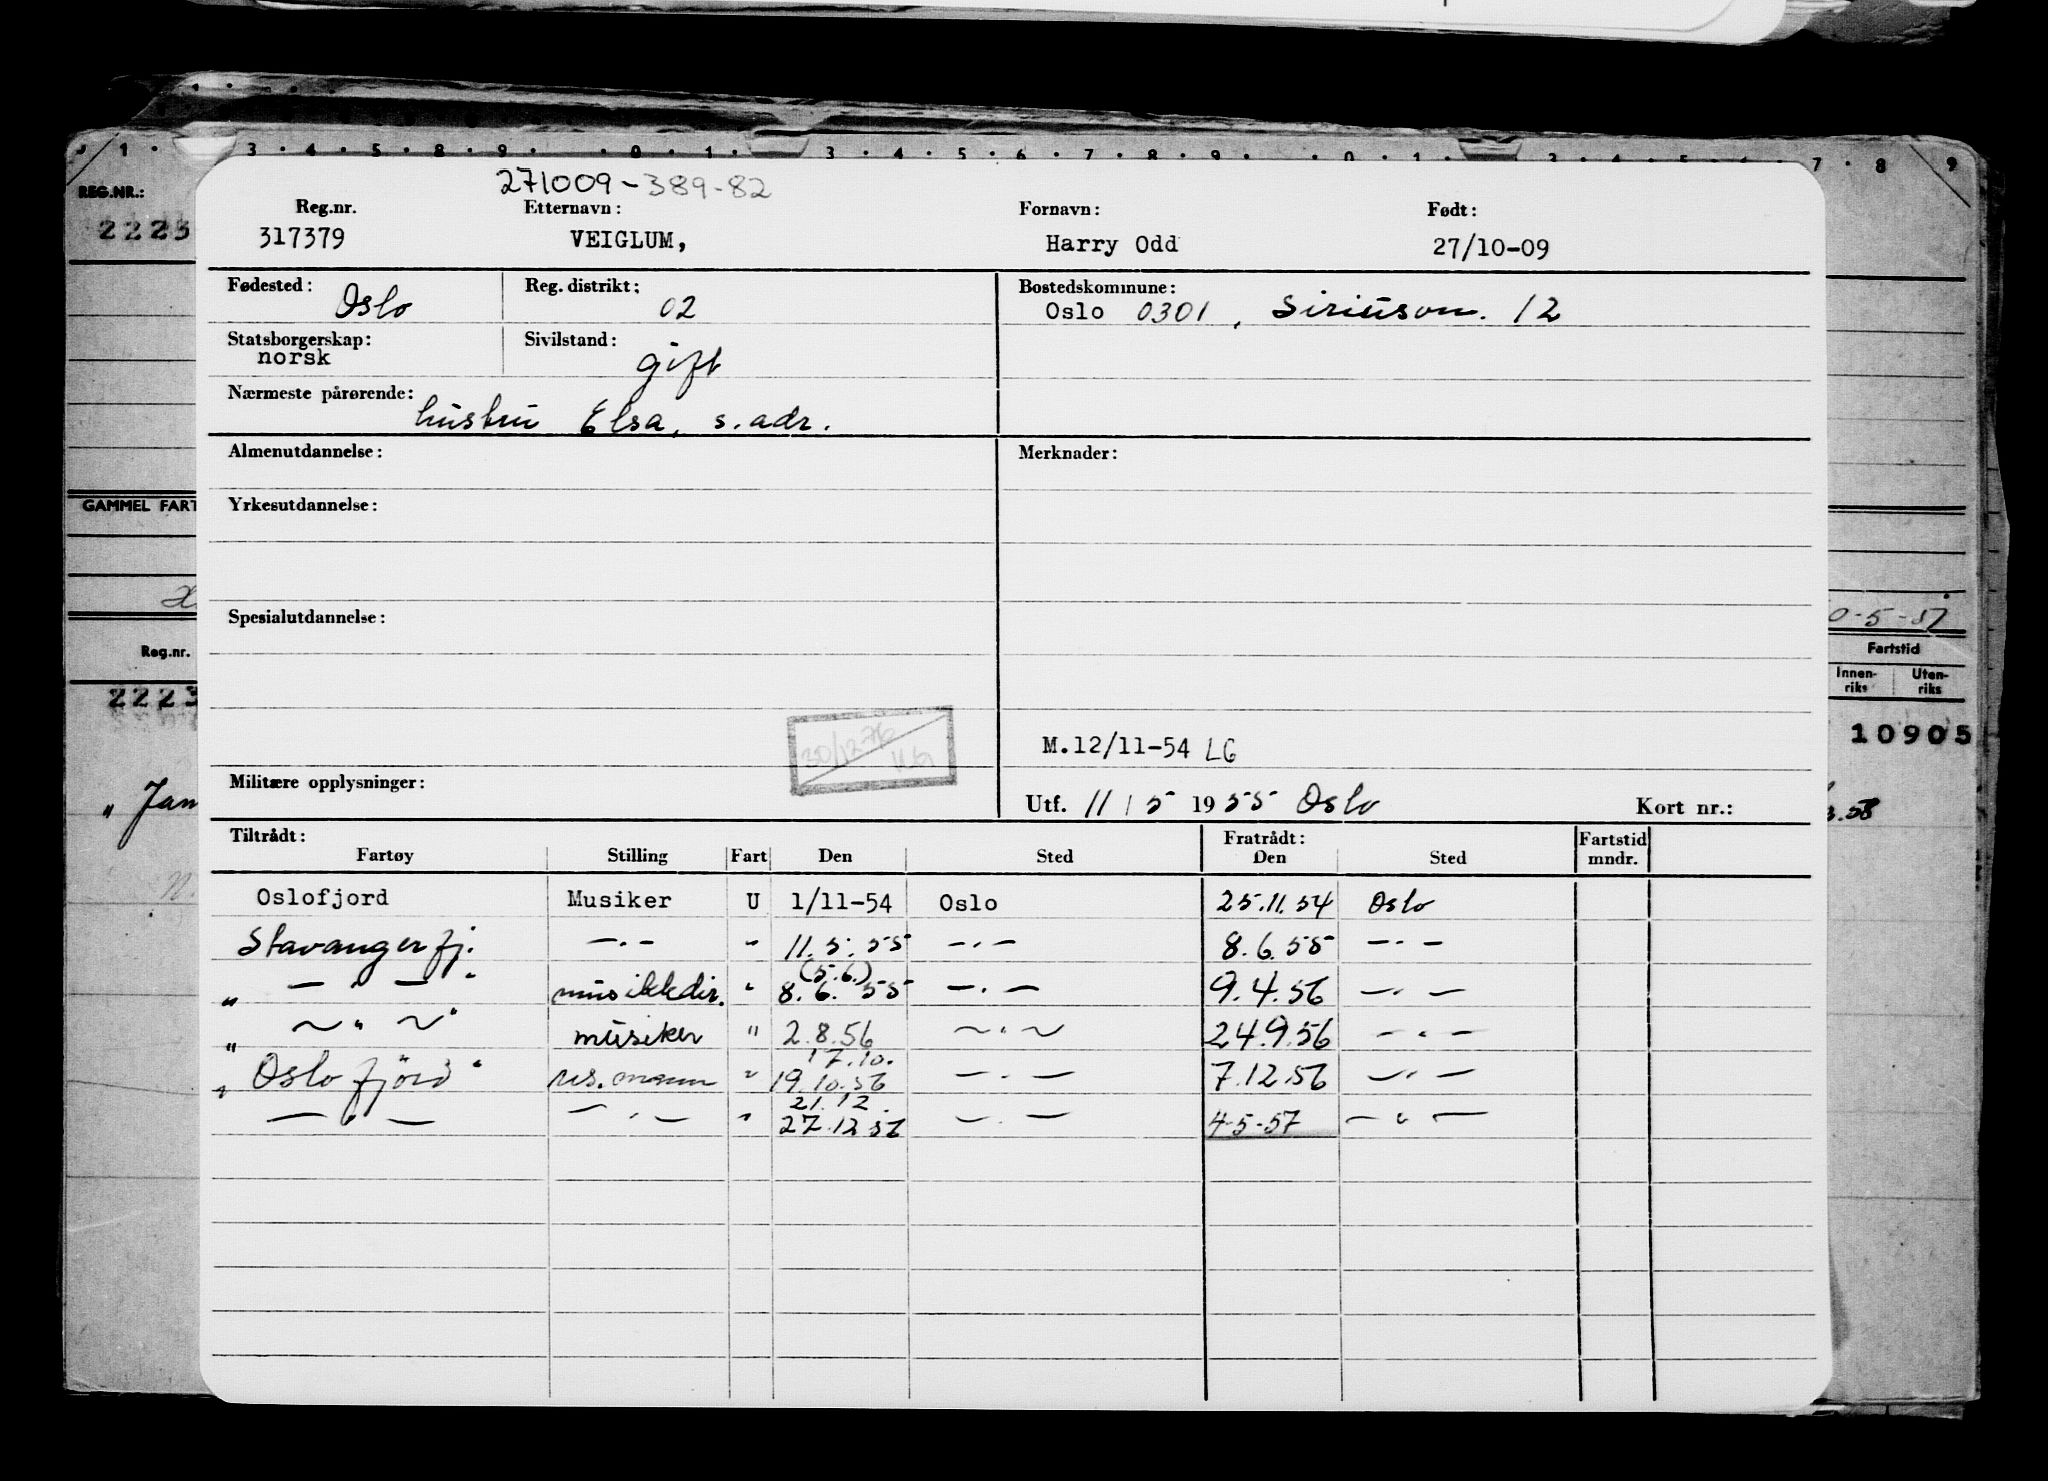 1 · 3 · 4 · 5 · 8 · 9 · 0 · 1 · 3 · 4 · 5 · 6 · 7 · 8 · 9 · 0 · 1 · 3 · 4 · 5 · 6 · 7 · 8 9
REG.NR.:
2223
271009-389-82
Reg.nr. Etternavn: Fornavn: Født:
317379 VEIGLUM, Harry Odd 27/10-09
Fødested: Oslo Reg. distrikt: 02 Bostedskommune:
Oslo 0301, Siriusvn. 12
Statsborgerskap: norsk Sivilstand: gift
Nærmeste pårørende:
hustru Elsa, s. adr.
Almenutdannelse: Merknader:
GAMMEL FART
Yrkesutdannelse:
Spesialutdannelse:
0-5-57
Reg.nr. Fartstid
Innen-riks Uten-riks
2223 10905
30/12 76
M.12/11-54 LG
Militære opplysninger:
Utf. 11/5 1955 Oslo Kort nr.:
" Jan 58
Tiltrådt: Fratrådt: Fartstid mndr.
Fartøy Stilling Fart Den Sted Den Sted
Oslofjord Musiker U 1/11-54 Oslo 25.11.54 Oslo
Stavangerfj. —.— " 11.5.55 —.— 8.6.55 —.—
(5.6.)
" — " — " musikkdir. " 8.6.55 —.— 9.4.56 —.—
" ~ " ~ " musiker " 2.8.56 ~.~ 24.9.56 —.—
17.10.
" Oslofjord " 19.10.56 —.— 7.12.56 —.—
21.12.
— " — —.— " 27.12.56 —.— 4-5-57 — " —